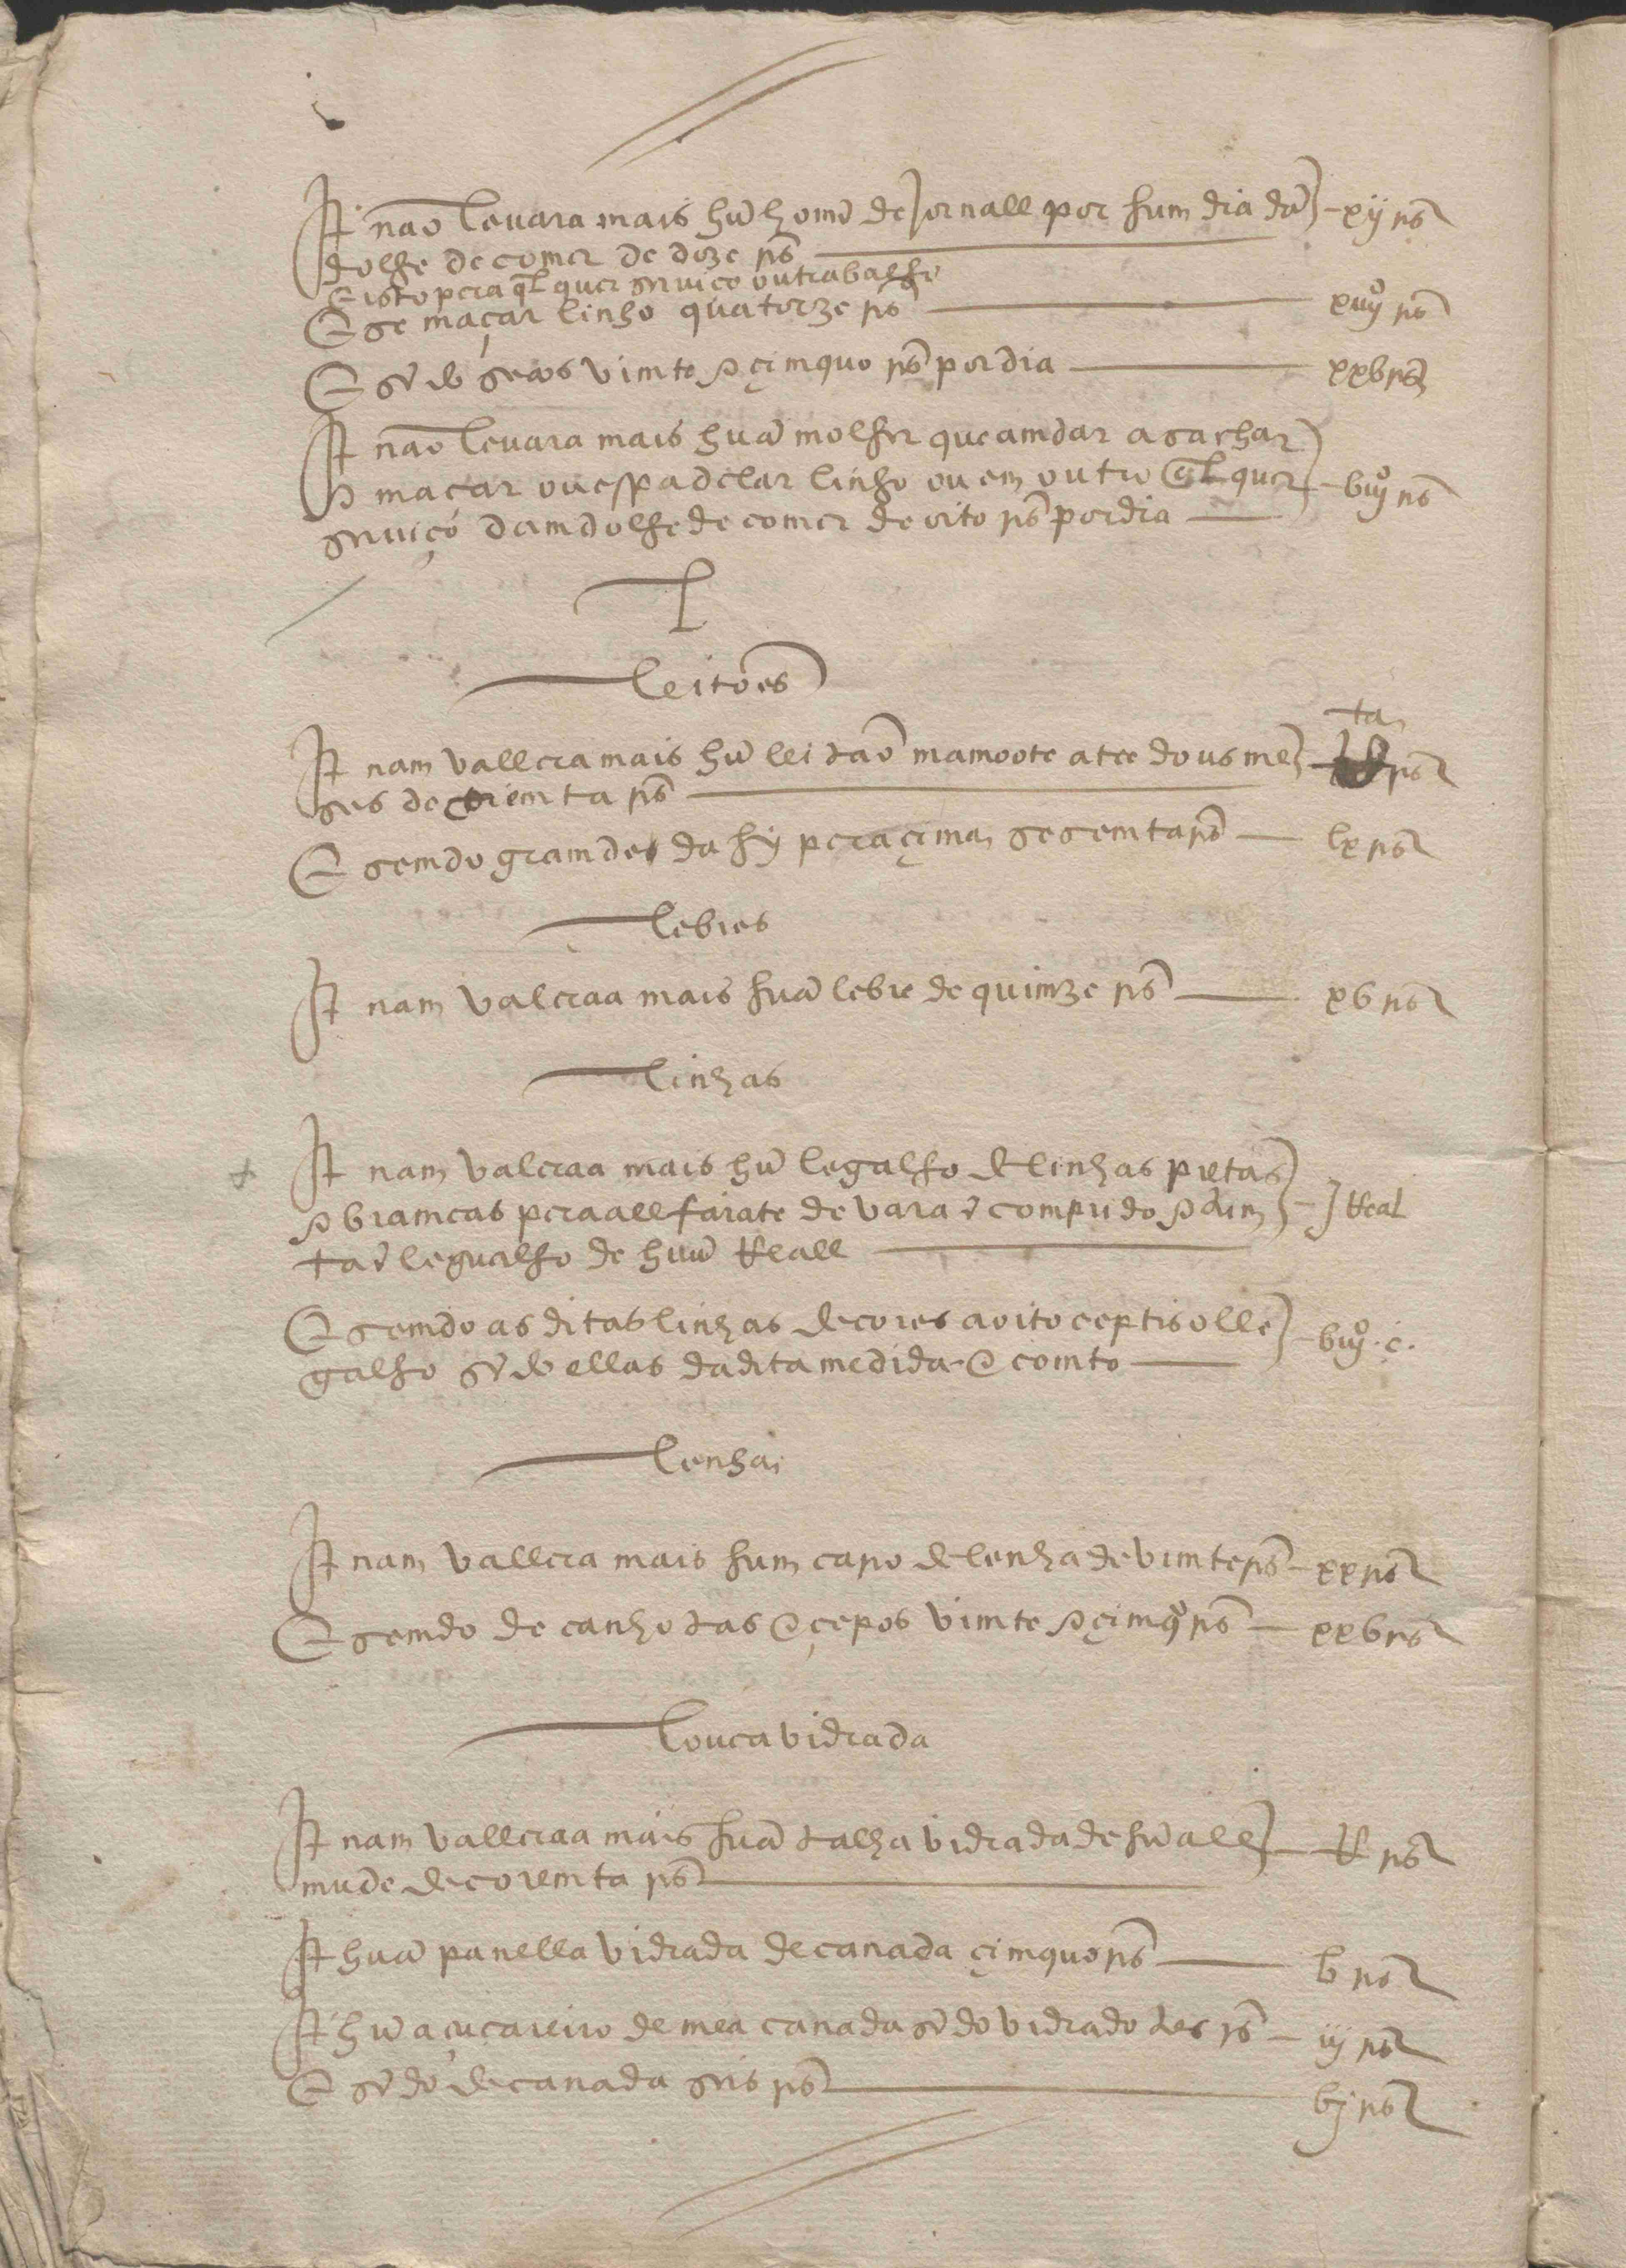 It não levara mais hũ homẽ de Jornall por hum dia dã xij rs
dolhe de comer de doze rs
E isto pera qlquer seruiço ou trabalho
E se maçar linho quatorze rs xiiijº rs
E sẽdo segãs vimte e çimquo rs por dia xxb rs
It não levara mais huã molher que amdar a sachar
e maçar ou espadelar linho ou em outro qlquer biijº rs
seruiço damdolhe de comer de oito rs por dia
L
Leitões
It nam vallera mais hũ leitão mamoote atee dous me ta rs
ses de triemta rs
E semdo grandes dahy pera çima sesemta rs lx rs
Lebres
It nam valeraa mais huã lebre de quimze rs xb rs
Linhas
It nam valeraa mais hũ legalho de linhas pretas
e bramcas pera allfaiate de vara ẽ comprido e dum j Real
tã legualho de huũ Reall
E semdo as ditas linhas de cores a oito ceptis o lle biijº . c.
galho sẽdo ellas da dita medida e comto
Lenha
It nam vallera mais hum caro de lenha de vimte rs xx rs
E semdo de canhotas e çepos vimte e çimqº rs xxb rs
Louca vidrada
It nam valleraa mais huã talha vidrada de hũ all R rs
mude de coremta rs
It huã panella vidrada de canada çimquo rs b rs
It hũ açucareiro de mea canada sẽdo vidrado tres rs iij rs
E sẽdo de canada seis rs bj rs